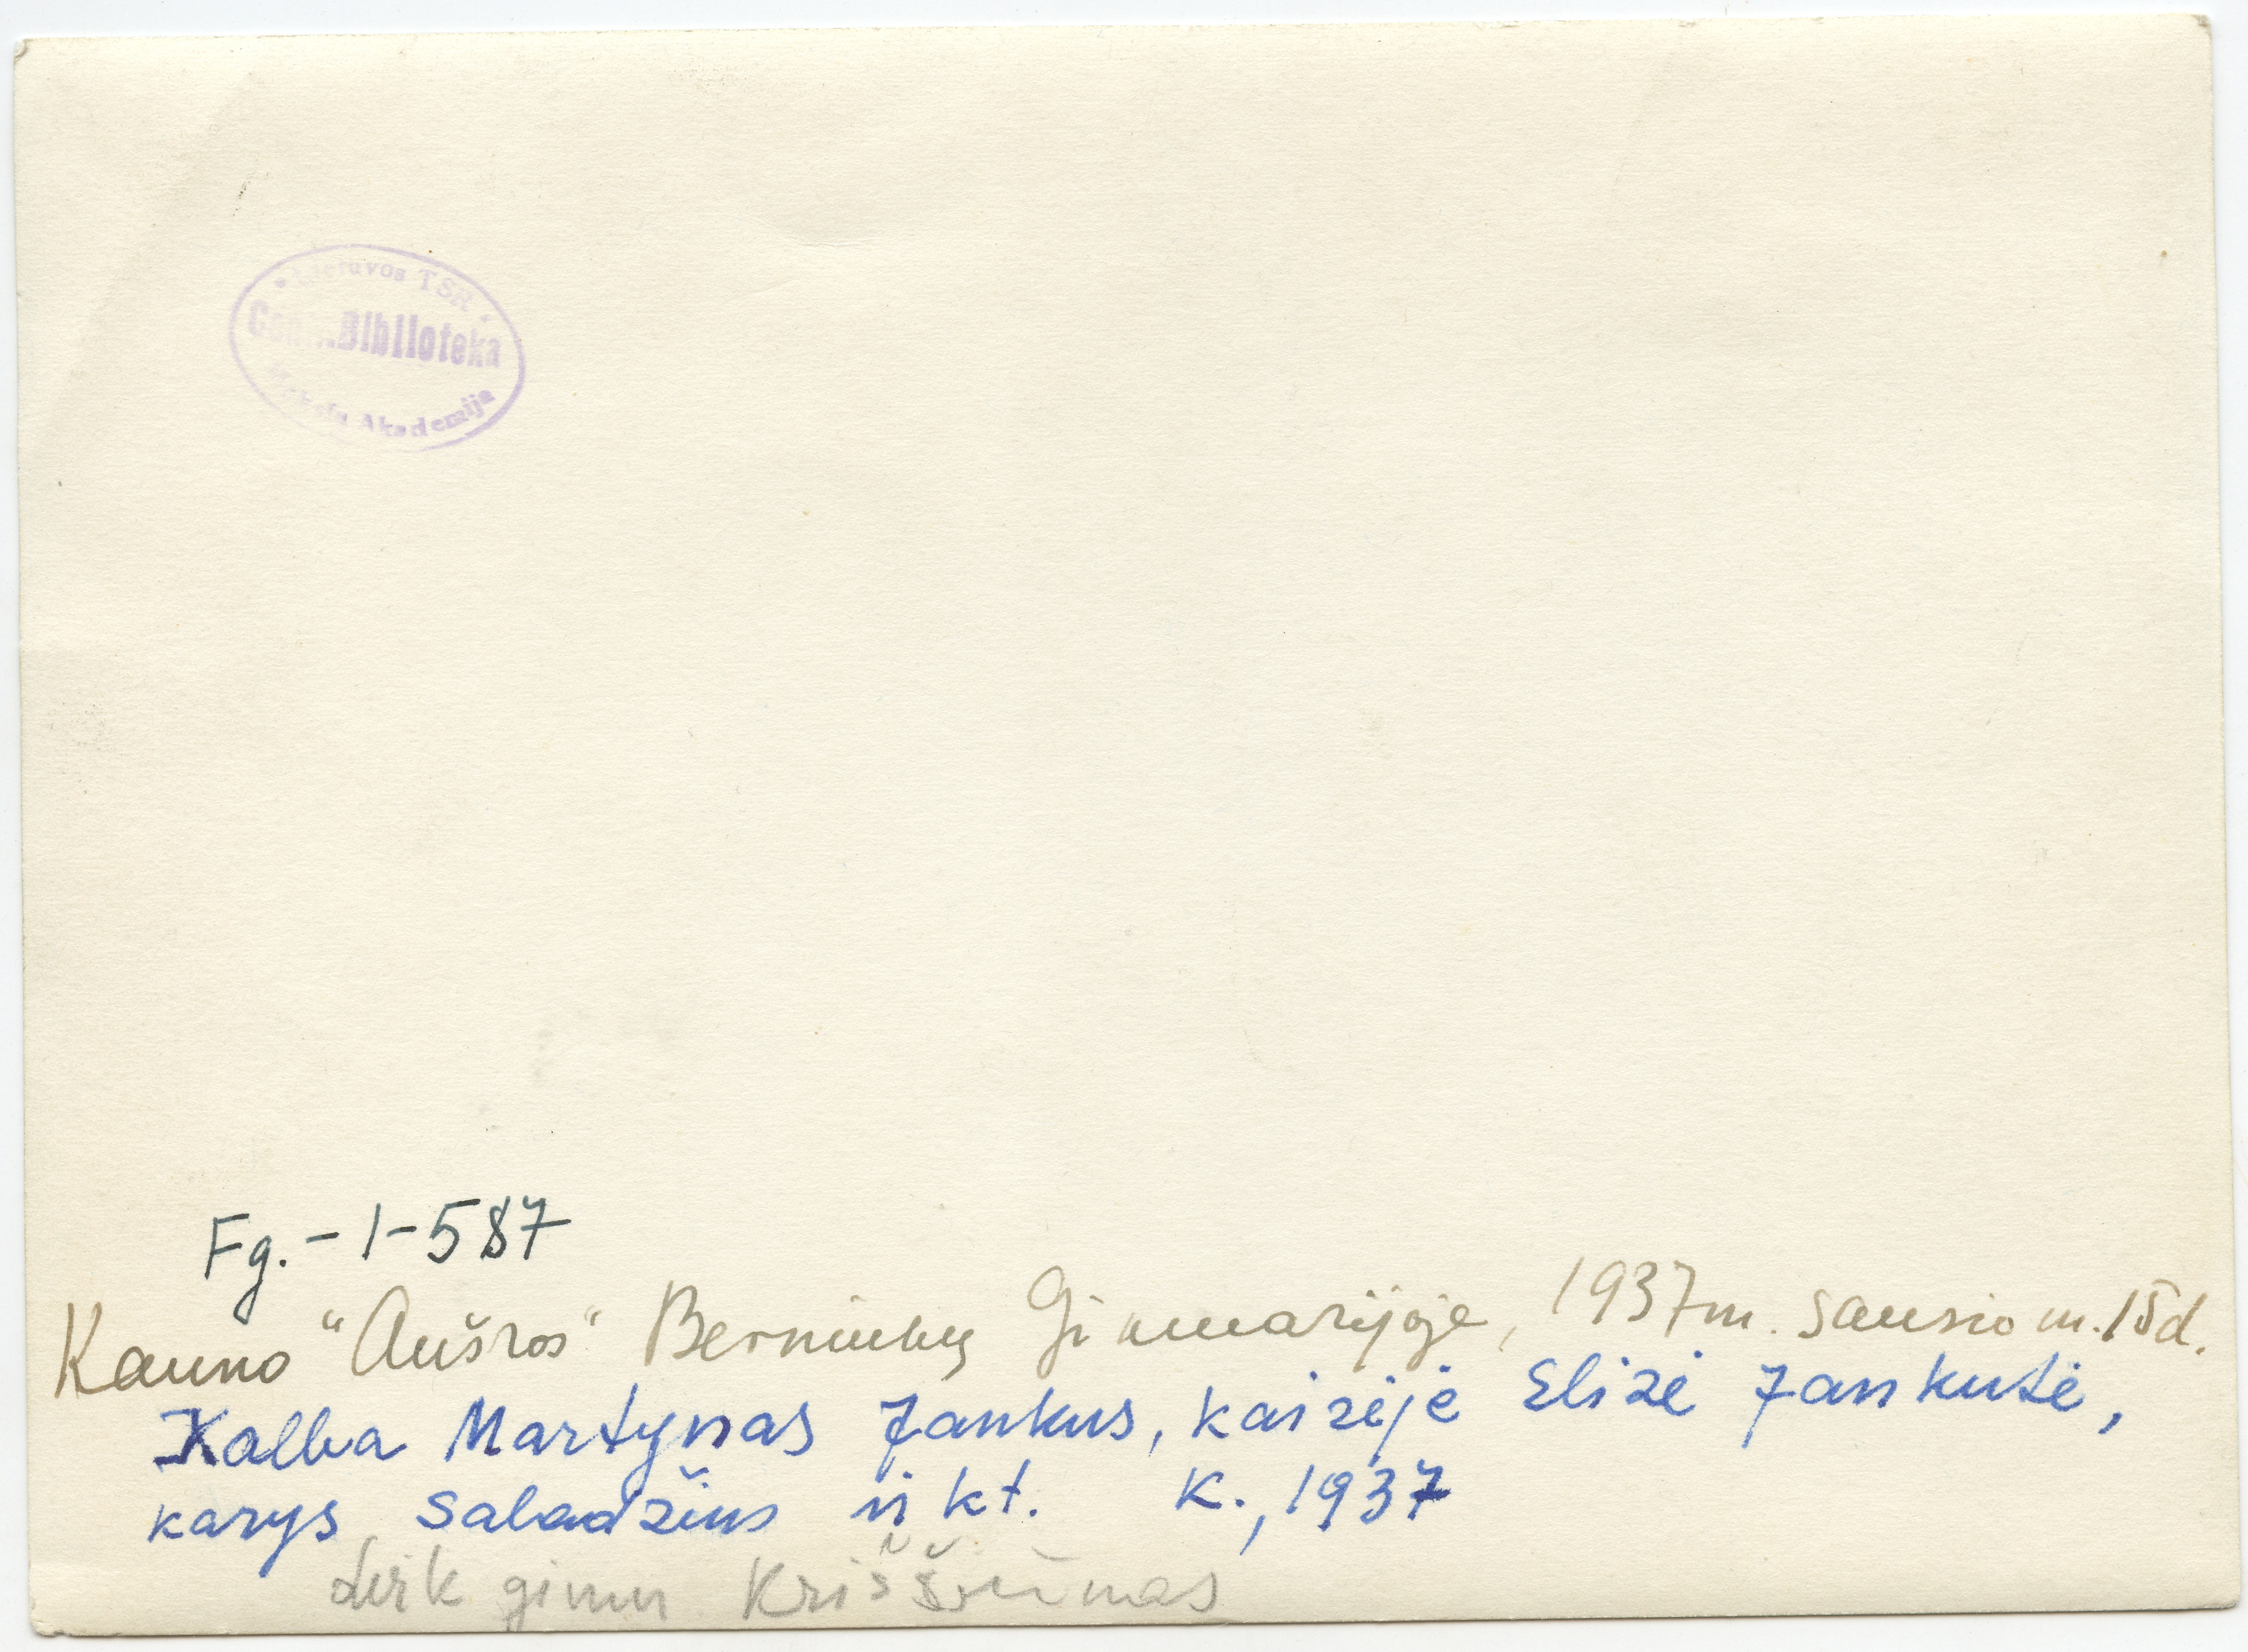 Lietuvos TSR
Centr. Biblioteka
Mokslų Akademija
Fg.-1-587
Kauno "Aušros" Berniukų Gimnazijoje, 1937 m. sausio m. 15 d.
Kalba Martynas Jankus, kairėje Elizė Jankutė,
karys Sabadžius ir kt. K., 1937
dirk gimn Kriščiūnas